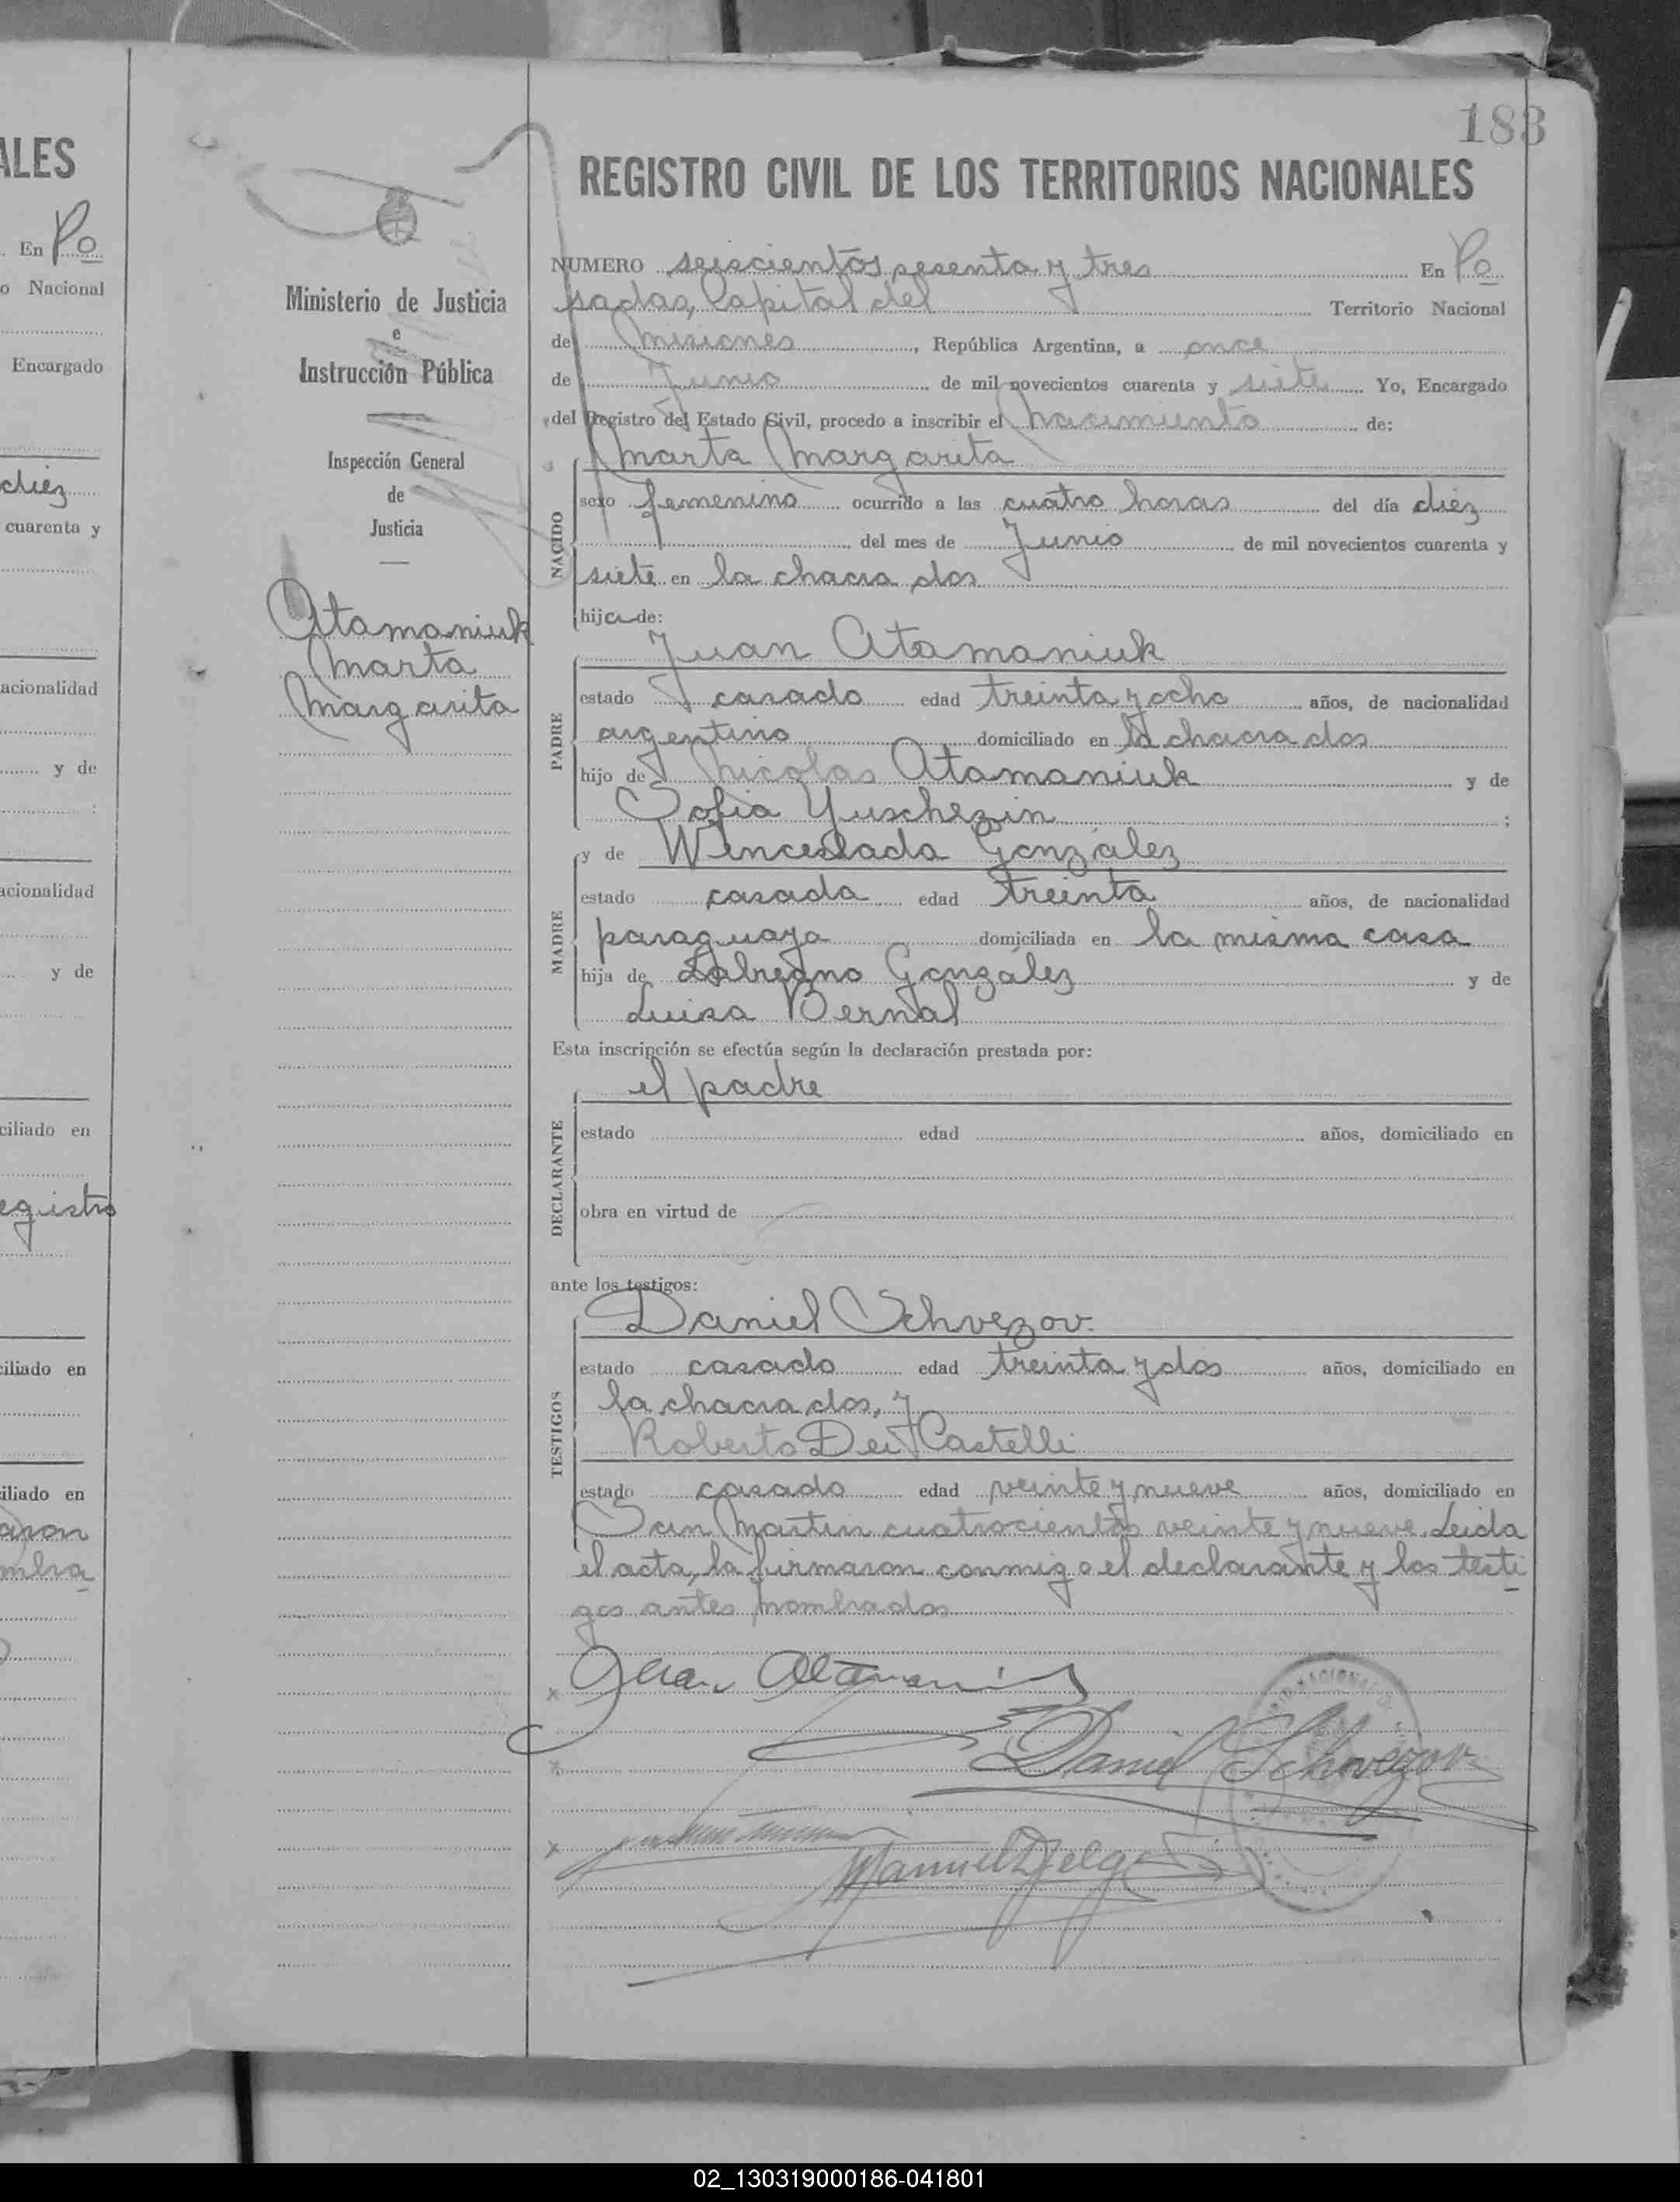 ALES
En Po
o Nacional
Encargado
diez
cuarenta y
acionalidad
y de
acionalidad
y de
ciliado en
egistro
ciliado en
iliado en
aron
mbra
183
REGISTRO CIVIL DE LOS TERRITORIOS NACIONALES
Ministerio de Justicia
e
Instrucción Pública
Inspección General
de
Justicia
Atamaniuk
Marta
Margarita
NUMERO seiscientos sesenta y tres En Po
sadas, Capital del Territorio Nacional
de Misiones, República Argentina, a once
de Junio de mil novecientos cuarenta y siete Yo, Encargado
del Registro del Estado Civil, procedo a inscribir el nacimiento de:
Marta Margarita
NACIDO
sexo femenino ocurrido a las cuatro horas del día diez
del mes de Junio de mil novecientos cuarenta y
siete en la chacra dos
hija de:
Juan Atamaniuk
PADRE
estado casado edad treinta y ocho años, de nacionalidad
argentino domiciliado en la chacra dos
hijo de Nicolas Atamaniuk y de
Sofia Yuschezin;
y de Wenceslada González
MADRE
estado casada edad treinta años, de nacionalidad
paraguaya domiciliada en la misma casa
hija de González y de
Luisa Bernal
Esta inscripción se efectúa según la declaración prestada por:
el padre
DECLARANTE
estado edad años, domiciliado en
obra en virtud de
ante los testigos:
Daniel Schvezov.
TESTIGOS
estado casado edad treinta y dos años, domiciliado en
la chacra dos, y
Roberto Dei Castelli
estado casado edad veinte y nueve años, domiciliado en
San Martin cuatrocientos veinte y nueve. Leida
el acta, la firmaron conmigo el declarante y los testi
gos antes nombrados
Juan Atamaniuk
Daniel Schvezov
02_130319000186-041801